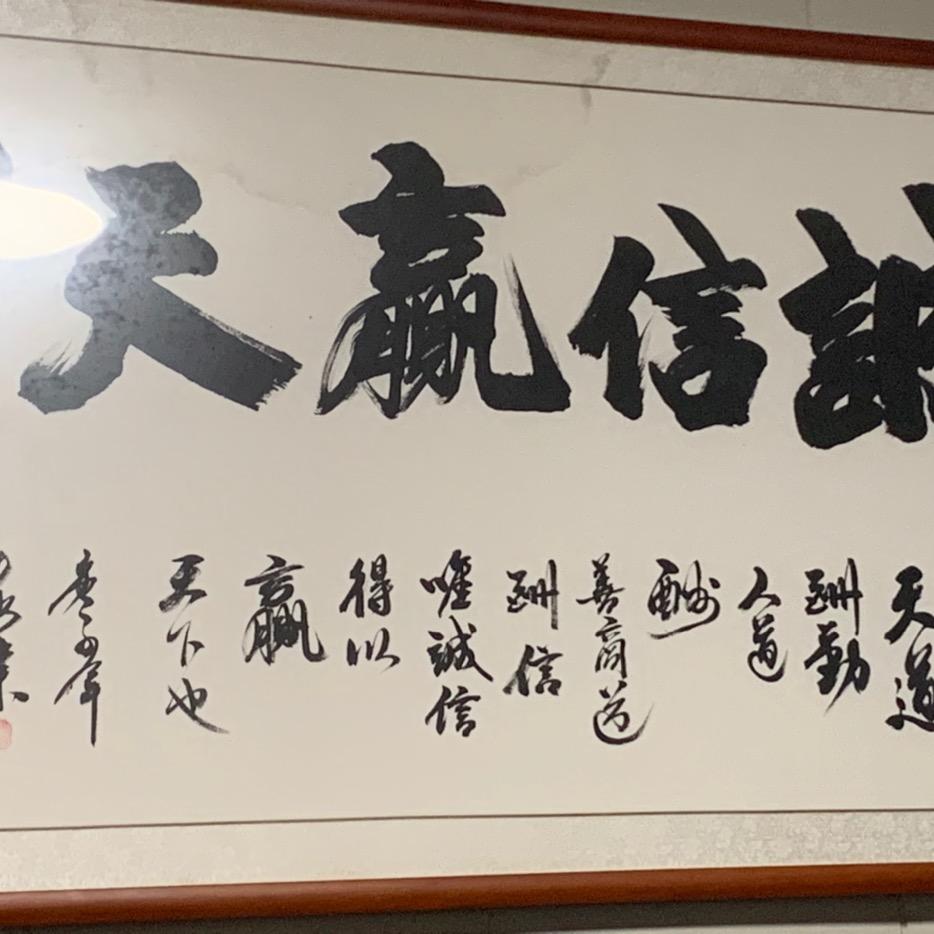 誠信贏天
天道
酬勤
人道
酬
善商道
酬信
唯誠信
得以
贏
天下也